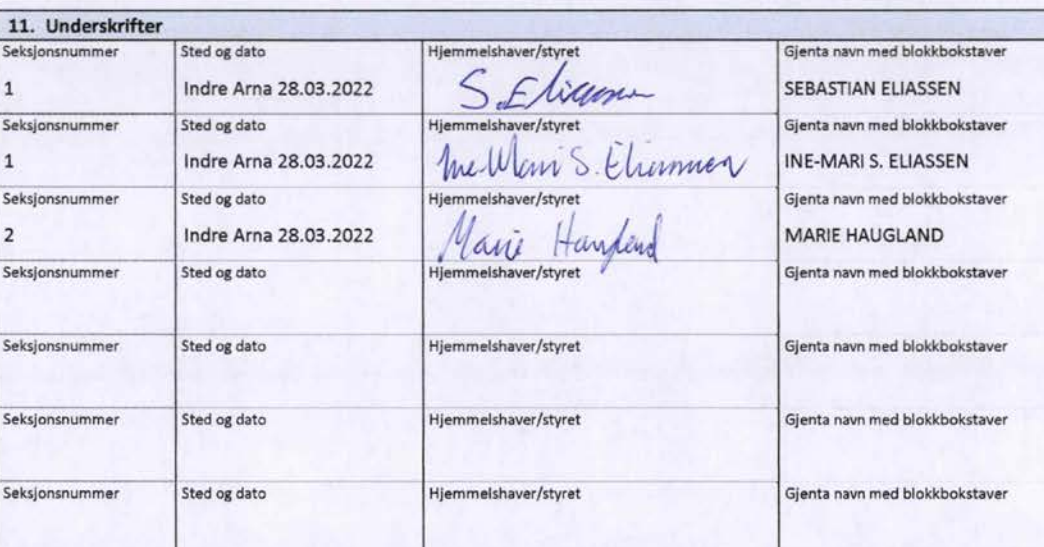 11. Underskrifter
Seksjonsnummer Sted og dato Hjemmelshaver/styret Gjenta navn med blokkbokstaver
1 Indre Arna 28.03.2022 S. Eliassen SEBASTIAN ELIASSEN
Seksjonsnummer Sted og dato Hjemmelshaver/styret Gjenta navn med blokkbokstaver
1 Indre Arna 28.03.2022 Ine-Mari S. Eliassen INE-MARI S. ELIASSEN
Seksjonsnummer Sted og dato Hjemmelshaver/styret Gjenta navn med blokkbokstaver
2 Indre Arna 28.03.2022 Marie Haugland MARIE HAUGLAND
Seksjonsnummer Sted og dato Hjemmelshaver/styret Gjenta navn med blokkbokstaver
Seksjonsnummer Sted og dato Hjemmelshaver/styret Gjenta navn med blokkbokstaver
Seksjonsnummer Sted og dato Hjemmelshaver/styret Gjenta navn med blokkbokstaver
Seksjonsnummer Sted og dato Hjemmelshaver/styret Gjenta navn med blokkbokstaver